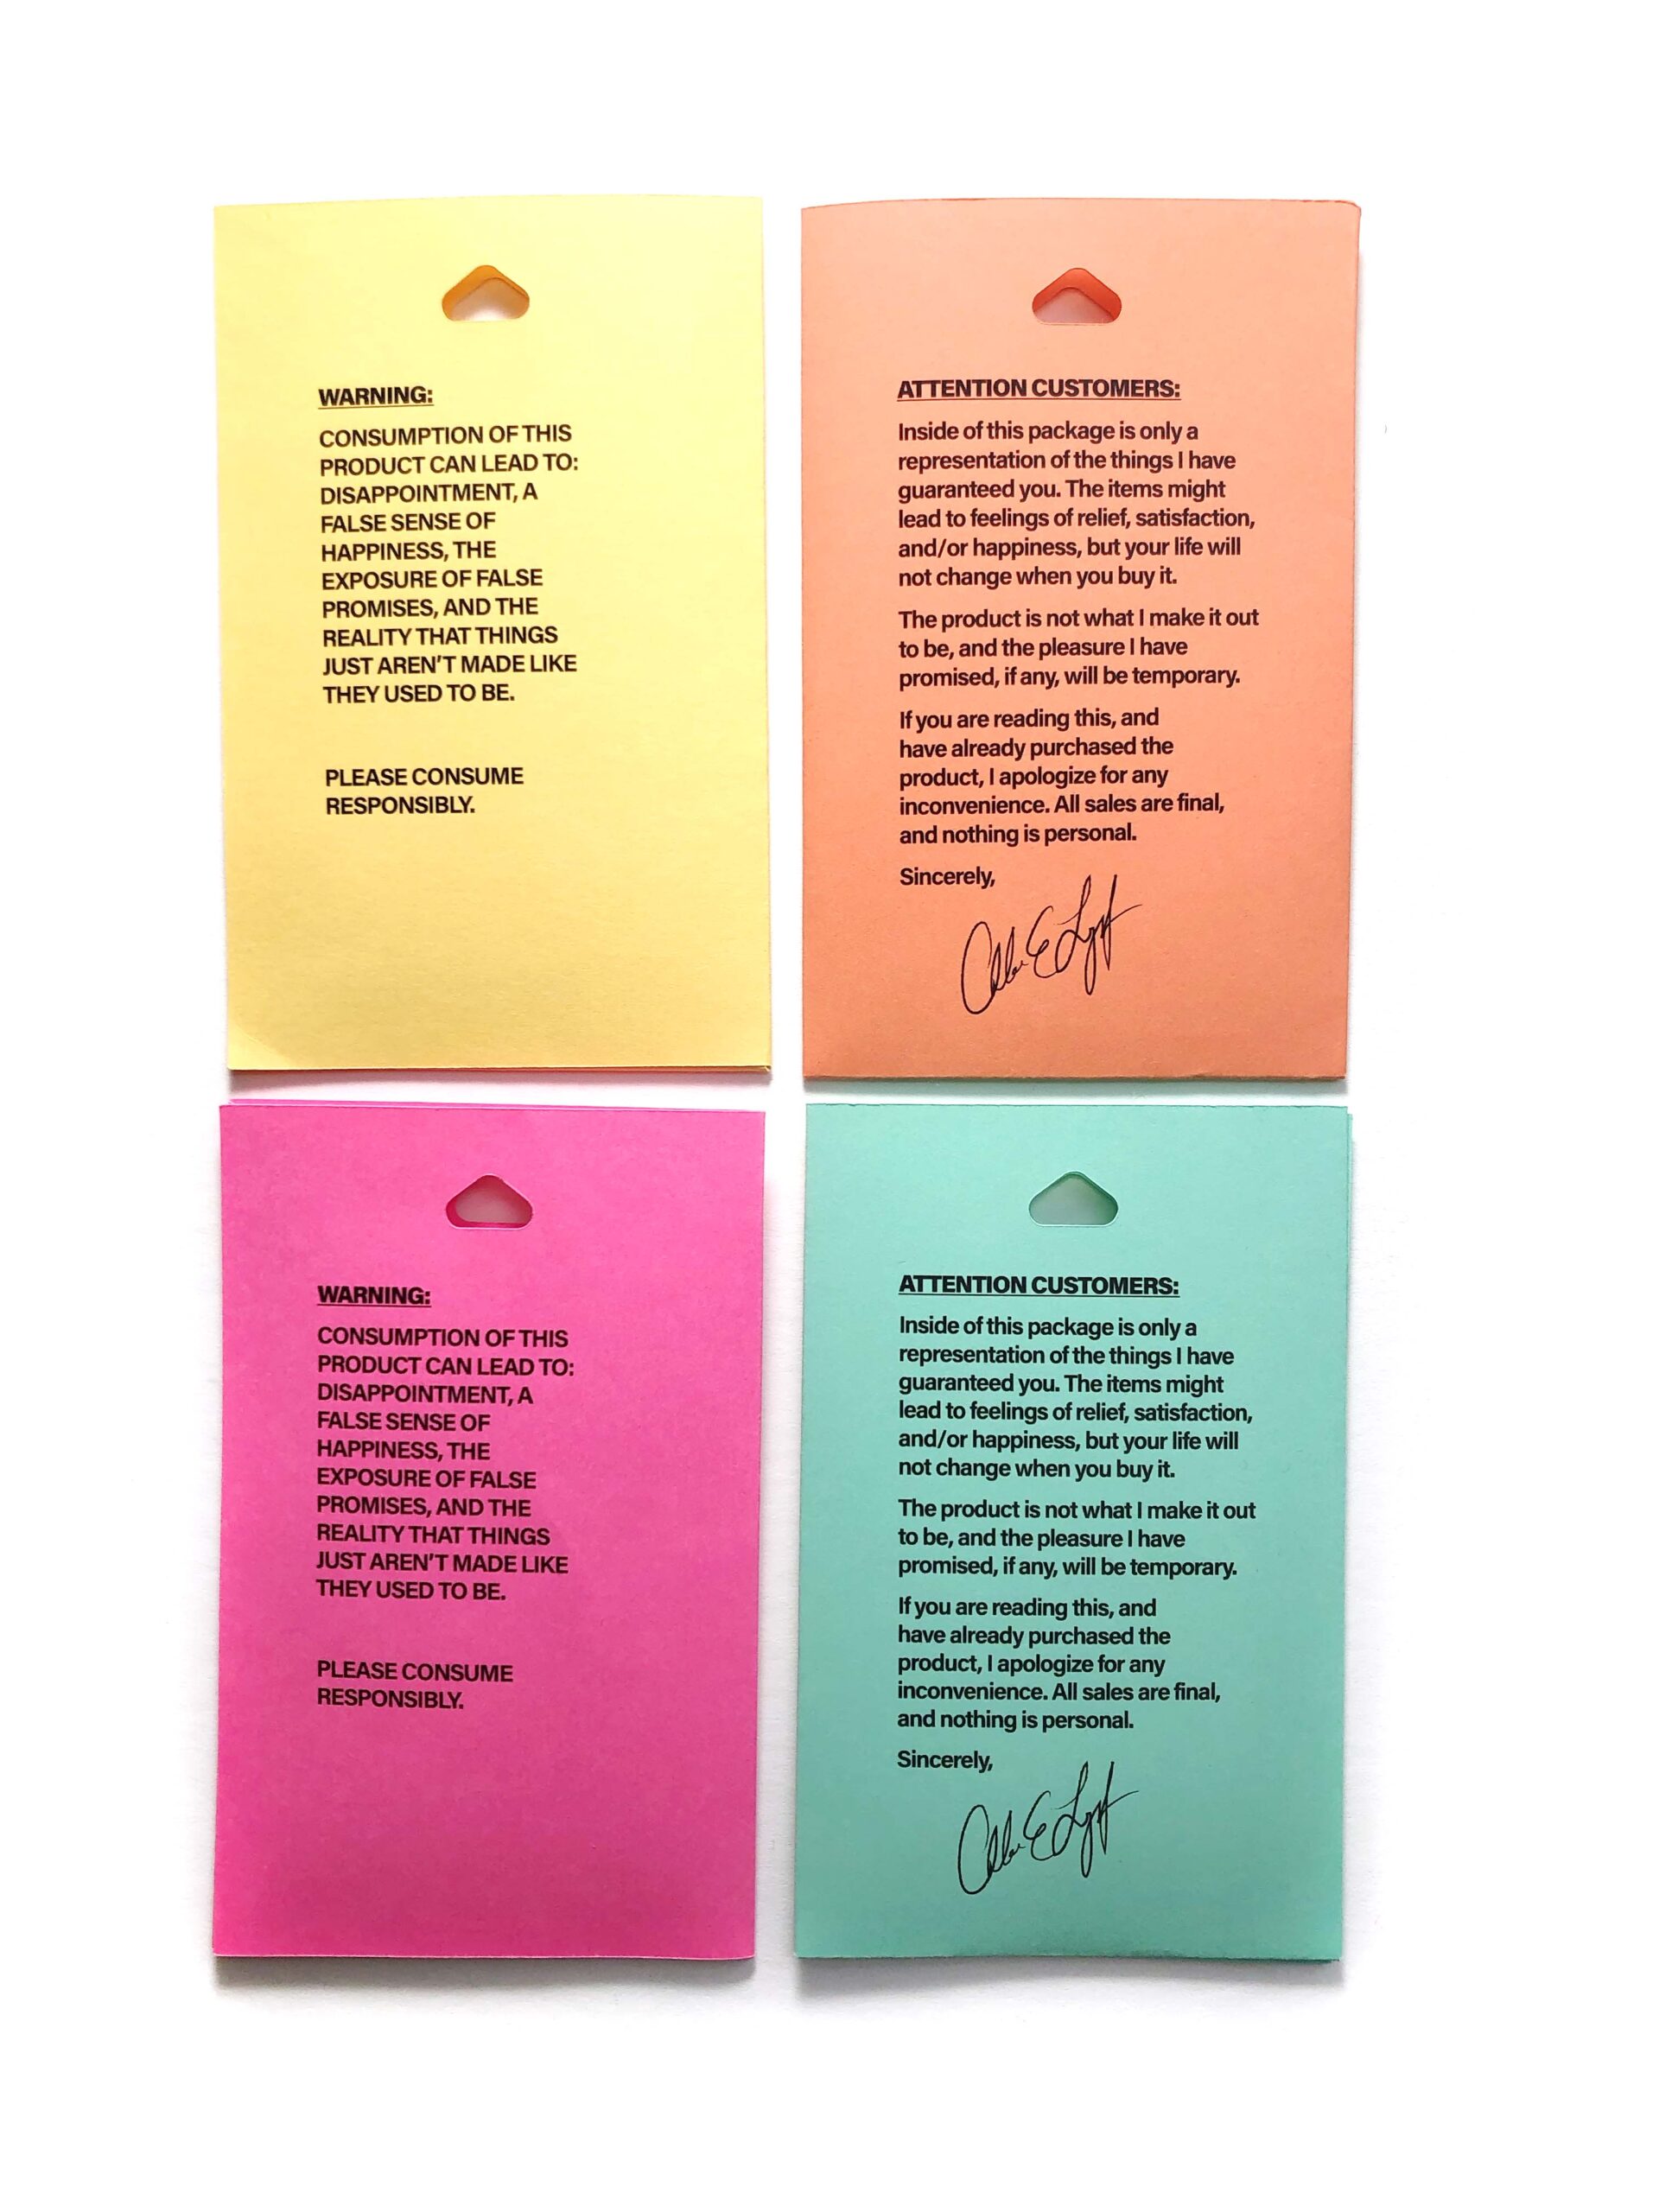 WARNING:
CONSUMPTION OF THIS
PRODUCT CAN LEAD TO:
DISAPPOINTMENT, A
FALSE SENSE OF
HAPPINESS, THE
EXPOSURE OF FALSE
PROMISES, AND THE
REALITY THAT THINGS
JUST AREN'T MADE LIKE
THEY USED TO BE.
PLEASE CONSUME
RESPONSIBLY.
ATTENTION CUSTOMERS:
Inside of this package is only a
representation of the things I have
guaranteed you. The items might
lead to feelings of relief, satisfaction,
and/or happiness, but your life will
not change when you buy it.
The product is not what I make it out
to be, and the pleasure I have
promised, if any, will be temporary.
If you are reading this, and
have already purchased the
product, I apologize for any
inconvenience. All sales are final,
and nothing is personal.
Sincerely,
WARNING:
CONSUMPTION OF THIS
PRODUCT CAN LEAD TO:
DISAPPOINTMENT, A
FALSE SENSE OF
HAPPINESS, THE
EXPOSURE OF FALSE
PROMISES, AND THE
REALITY THAT THINGS
JUST AREN'T MADE LIKE
THEY USED TO BE.
PLEASE CONSUME
RESPONSIBLY.
ATTENTION CUSTOMERS:
Inside of this package is only a
representation of the things I have
guaranteed you. The items might
lead to feelings of relief, satisfaction,
and/or happiness, but your life will
not change when you buy it.
The product is not what I make it out
to be, and the pleasure I have
promised, if any, will be temporary.
If you are reading this, and
have already purchased the
product, I apologize for any
inconvenience. All sales are final,
and nothing is personal.
Sincerely,